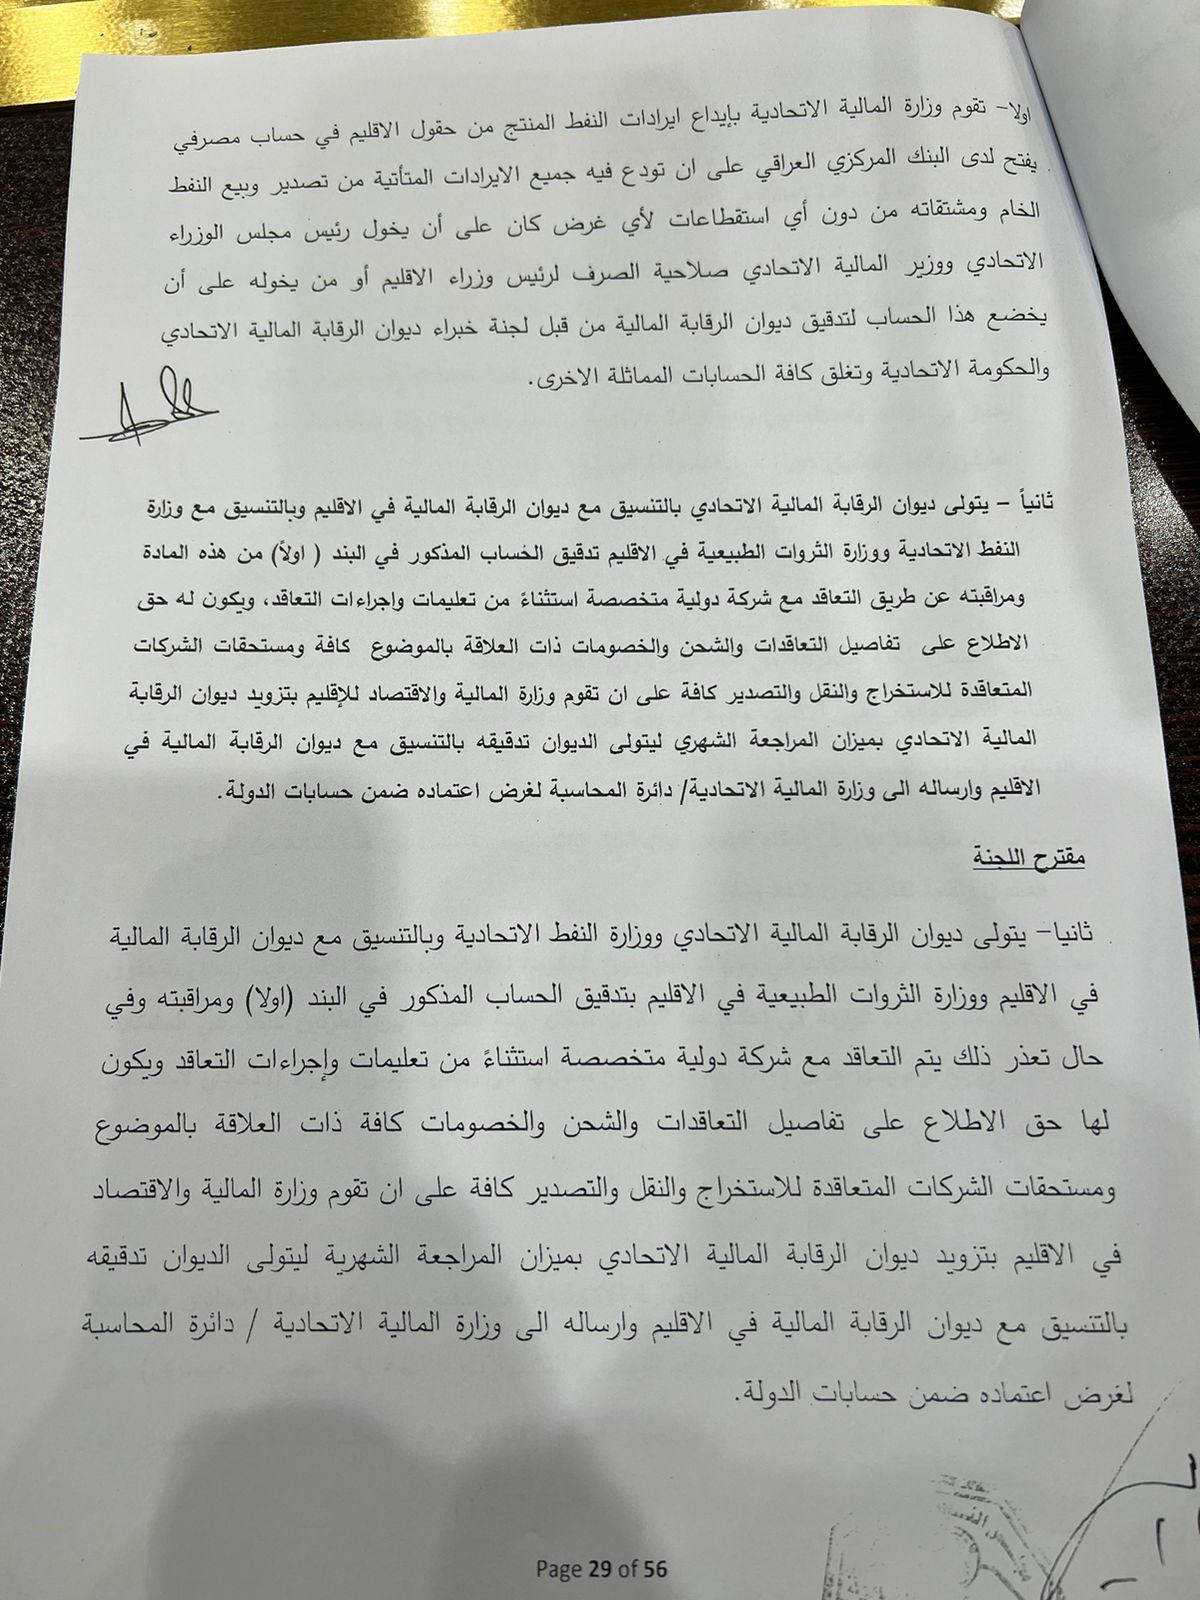 اولا- تقوم وزارة المالية الاتحادية بإيداع ايرادات النفط المنتج من حقول الاقليم في حساب مصرفي
يفتح لدى البنك المركزي العراقي على ان تودع فيه جميع الايرادات المتأتية من تصدير وبيع النفط
الخام ومشتقاته من دون أي استقطاعات لأي غرض كان على أن يخول رئيس مجلس الوزراء
الاتحادي ووزير المالية الاتحادي صلاحية الصرف لرئيس وزراء الاقليم أو من يخوله على أن
يخضع هذا الحساب لتدقيق ديوان الرقابة المالية من قبل لجنة خبراء ديوان الرقابة المالية الاتحادي
والحكومة الاتحادية وتغلق كافة الحسابات المماثلة الاخرى.
ثانياً – يتولى ديوان الرقابة المالية الاتحادي بالتنسيق مع ديوان الرقابة المالية في الاقليم وبالتنسيق مع وزارة
النفط الاتحادية ووزارة الثروات الطبيعية في الاقليم تدقيق الحساب المذكور في البند ( اولاً) من هذه المادة
ومراقبته عن طريق التعاقد مع شركة دولية متخصصة استثناءً من تعليمات واجراءات التعاقد، ويكون له حق
الاطلاع على تفاصيل التعاقدات والشحن والخصومات ذات العلاقة بالموضوع كافة ومستحقات الشركات
المتعاقدة للاستخراج والنقل والتصدير كافة على ان تقوم وزارة المالية والاقتصاد للإقليم بتزويد ديوان الرقابة
المالية الاتحادي بميزان المراجعة الشهري ليتولى الديوان تدقيقه بالتنسيق مع ديوان الرقابة المالية في
الاقليم وارساله الى وزارة المالية الاتحادية/ دائرة المحاسبة لغرض اعتماده ضمن حسابات الدولة.
مقترح اللجنة
ثانيا- يتولى ديوان الرقابة المالية الاتحادي ووزارة النفط الاتحادية وبالتنسيق مع ديوان الرقابة المالية
في الاقليم ووزارة الثروات الطبيعية في الاقليم بتدقيق الحساب المذكور في البند (اولا) ومراقبته وفي
حال تعذر ذلك يتم التعاقد مع شركة دولية متخصصة استثناءً من تعليمات وإجراءات التعاقد ويكون
لها حق الاطلاع على تفاصيل التعاقدات والشحن والخصومات كافة ذات العلاقة بالموضوع
ومستحقات الشركات المتعاقدة للاستخراج والنقل والتصدير كافة على ان تقوم وزارة المالية والاقتصاد
في الاقليم بتزويد ديوان الرقابة المالية الاتحادي بميزان المراجعة الشهرية ليتولى الديوان تدقيقه
بالتنسيق مع ديوان الرقابة المالية في الاقليم وارساله الى وزارة المالية الاتحادية / دائرة المحاسبة
لغرض اعتماده ضمن حسابات الدولة.
Page 29 of 56